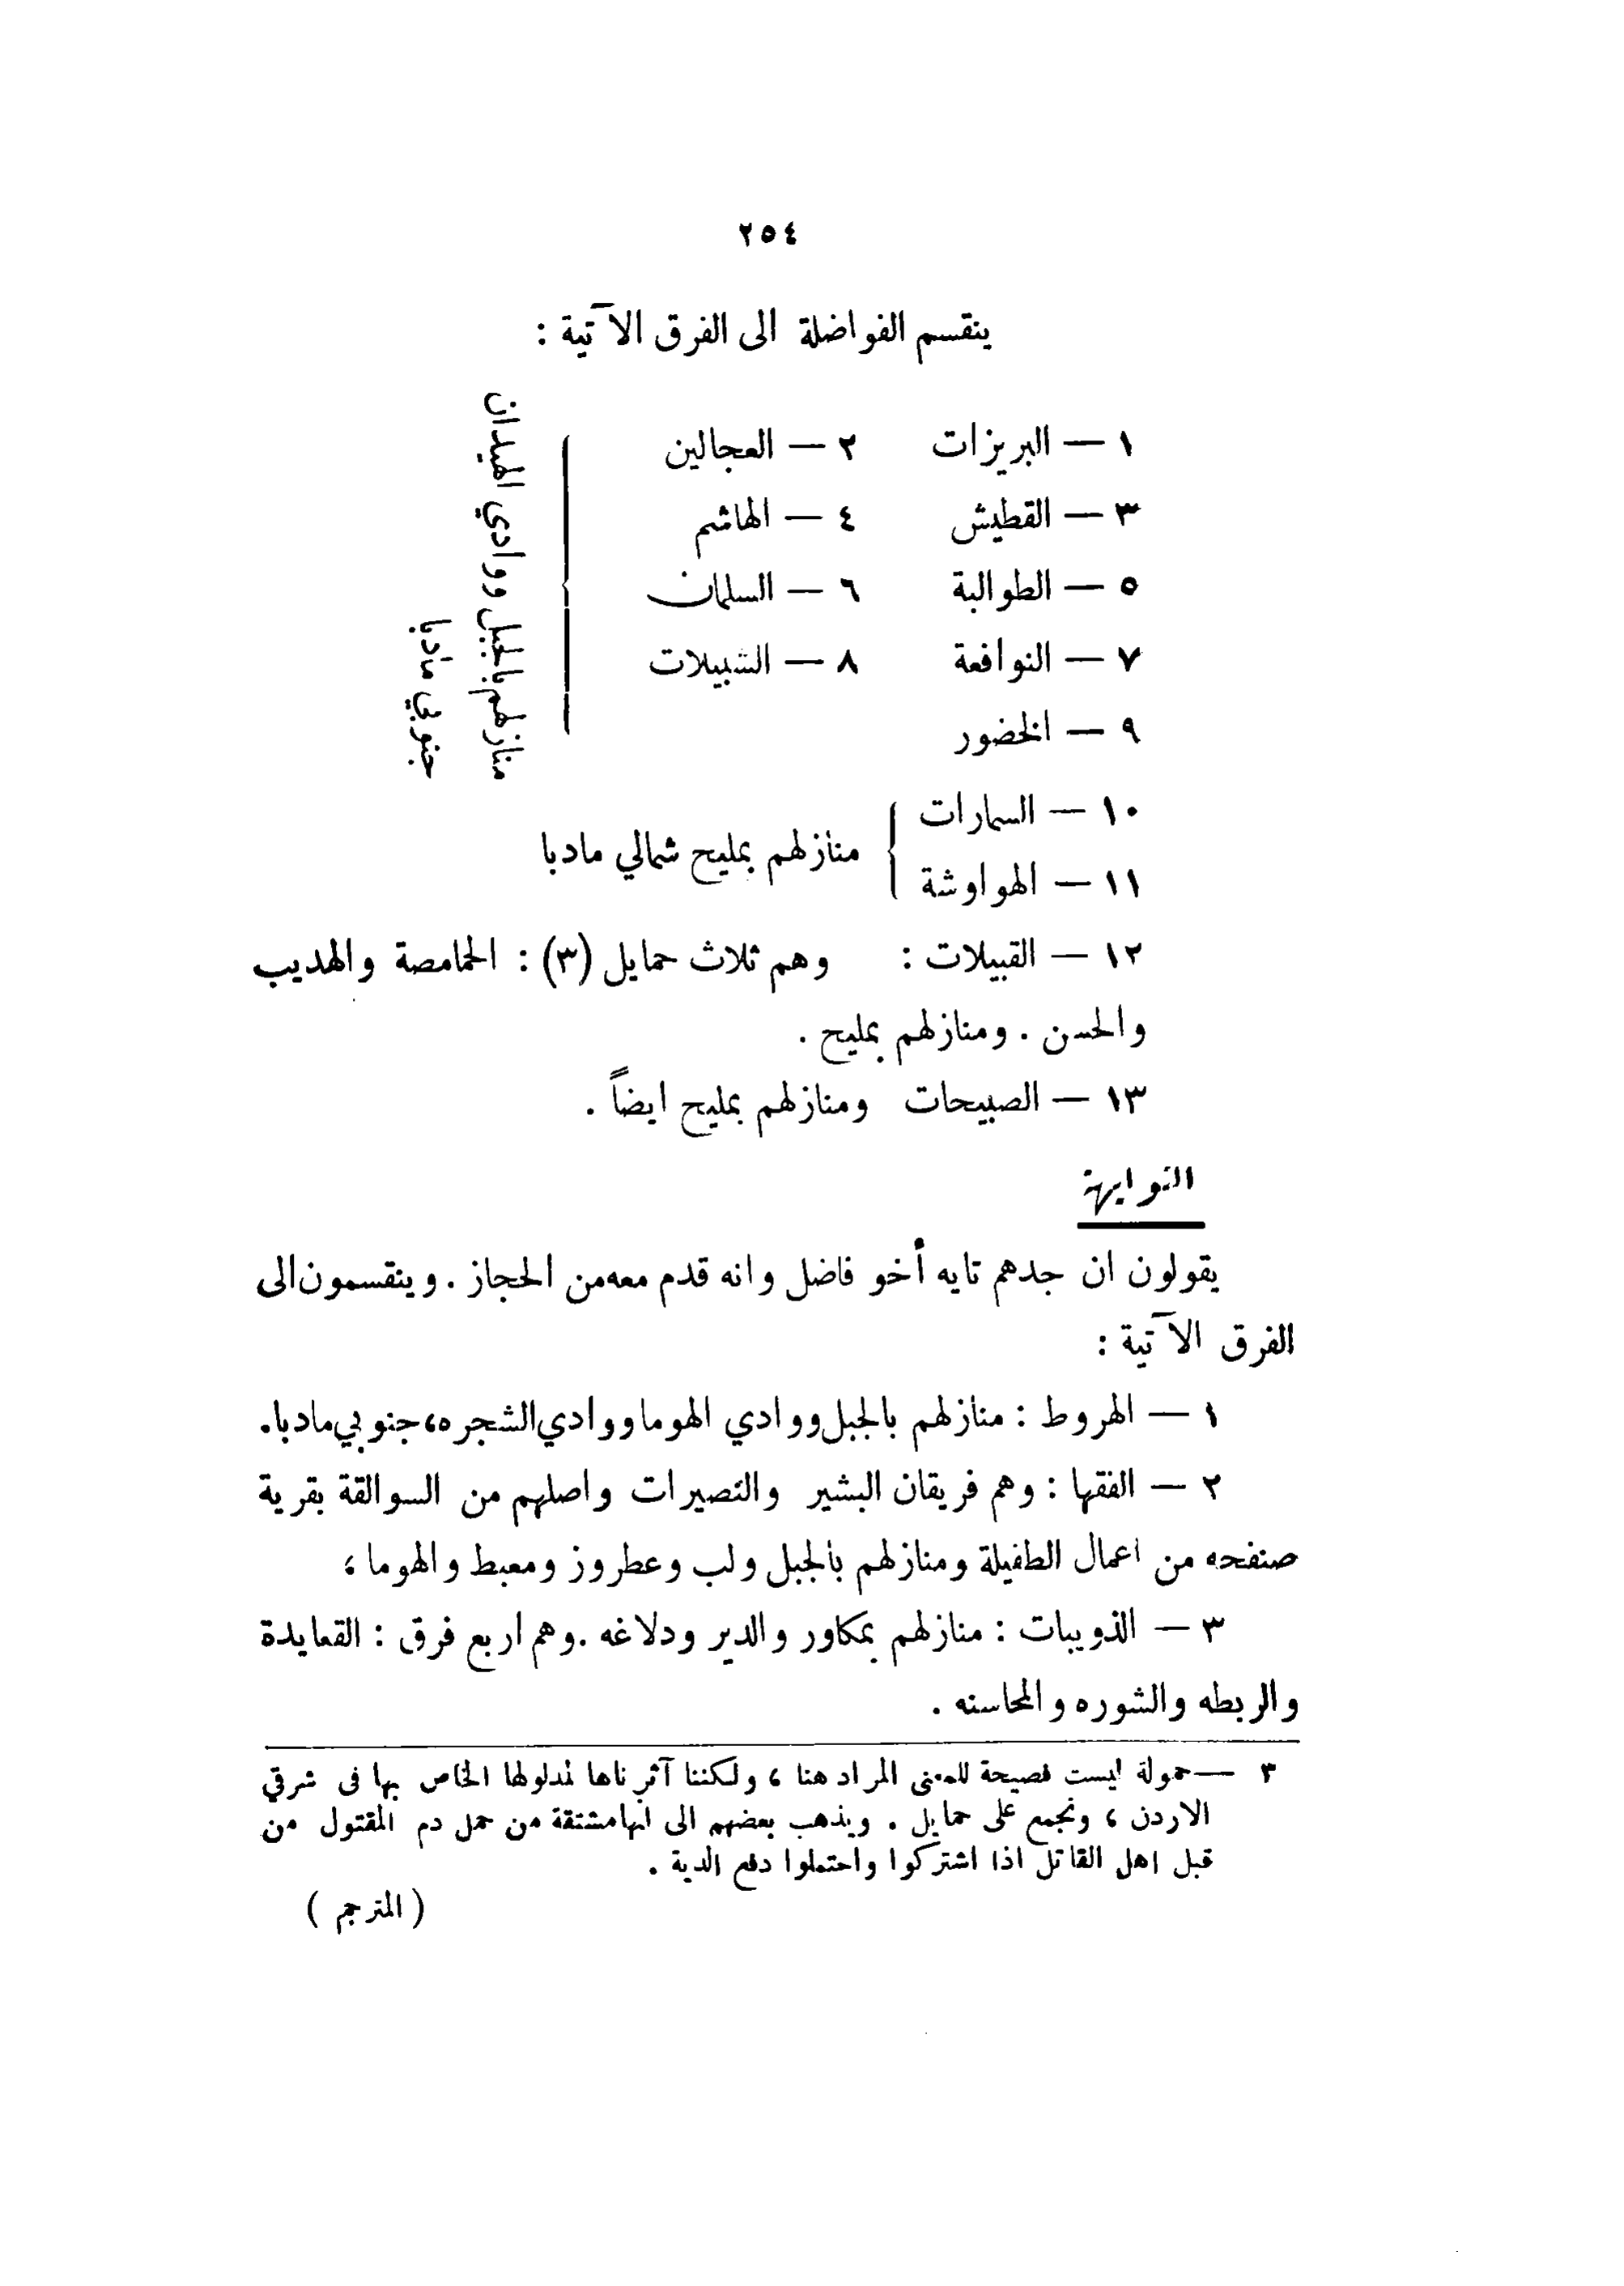 ٢٥٤
ينقسم الفواضلة الى الفرق الآتية :
١ — البريزات ٢ — العجالين
٣ — القطيش ٤ — الهاشم
٥ — الطوالبة ٦ — السلمان
٧ — النوافعة ٨ — الشبيلات
٩ — الخضور
منازلهم بالجبل ووادي الهيدان
جنوبي مادبا
١٠ — السمارات
١١ — الهواوشة
منازلهم بمليح شمالي مادبا
١٢ — القبيلات : وهم ثلاث حمايل (٣) : الحمامصة والهديب
والحسن . ومنازلهم بمليح .
١٣ — الصبيحات ومنازلهم بمليح ايضاً .
النوايهة
يقولون ان جدهم تايه أخو فاضل وانه قدم معه من الحجاز . وينقسمون الى
الفرق الآتية :
١ — الهروط : منازلهم بالجبل ووادي الهوما ووادي الشجره، جنوبي مادبا.
٢ — الفقها : وهم فريقان البشير والنصيرات واصلهم من السوالقة بقرية
صنفحه من اعمال الطفيلة ومنازلهم بالجبل ولب وعطروز ومعبط والهوما ؛
٣ — الذويبات : منازلهم بمكاور والدير ودلاغه . وهم اربع فرق : القعايدة
والربطه والشوره والمحاسنه .
٣ — حمولة ليست فصيحة للمعنى المراد هنا ، ولكننا آثرناها لمدلولها الخاص بها في شرقي
الاردن ، وتجمع على حمايل . ويذهب بعضهم الى انها مشتقة من حمل دم المقتول من
قبل اهل القاتل اذا اشتركوا واحتملوا دفع الدية .
( المترجم )